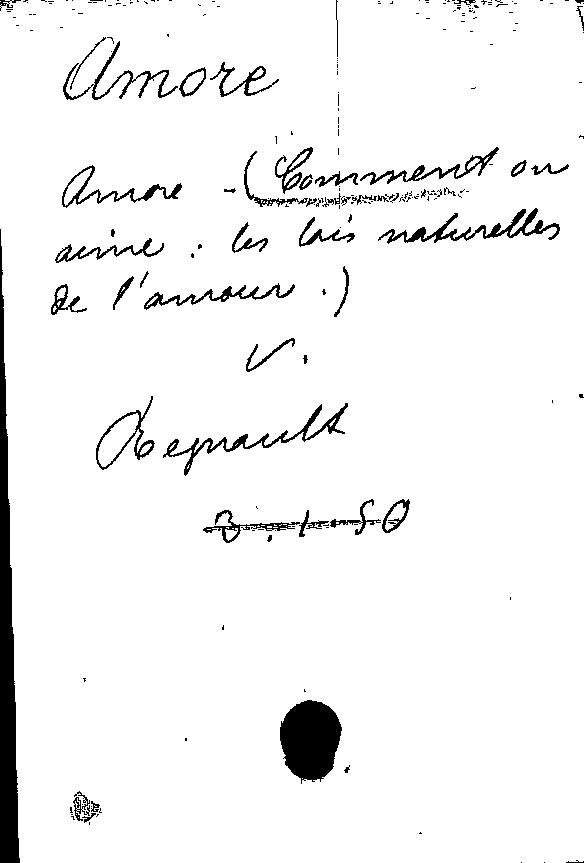 Amore
Amore - (Comment on
aime : les lois naturelles
de l'amour.)
V.
Regnault
3.1.50